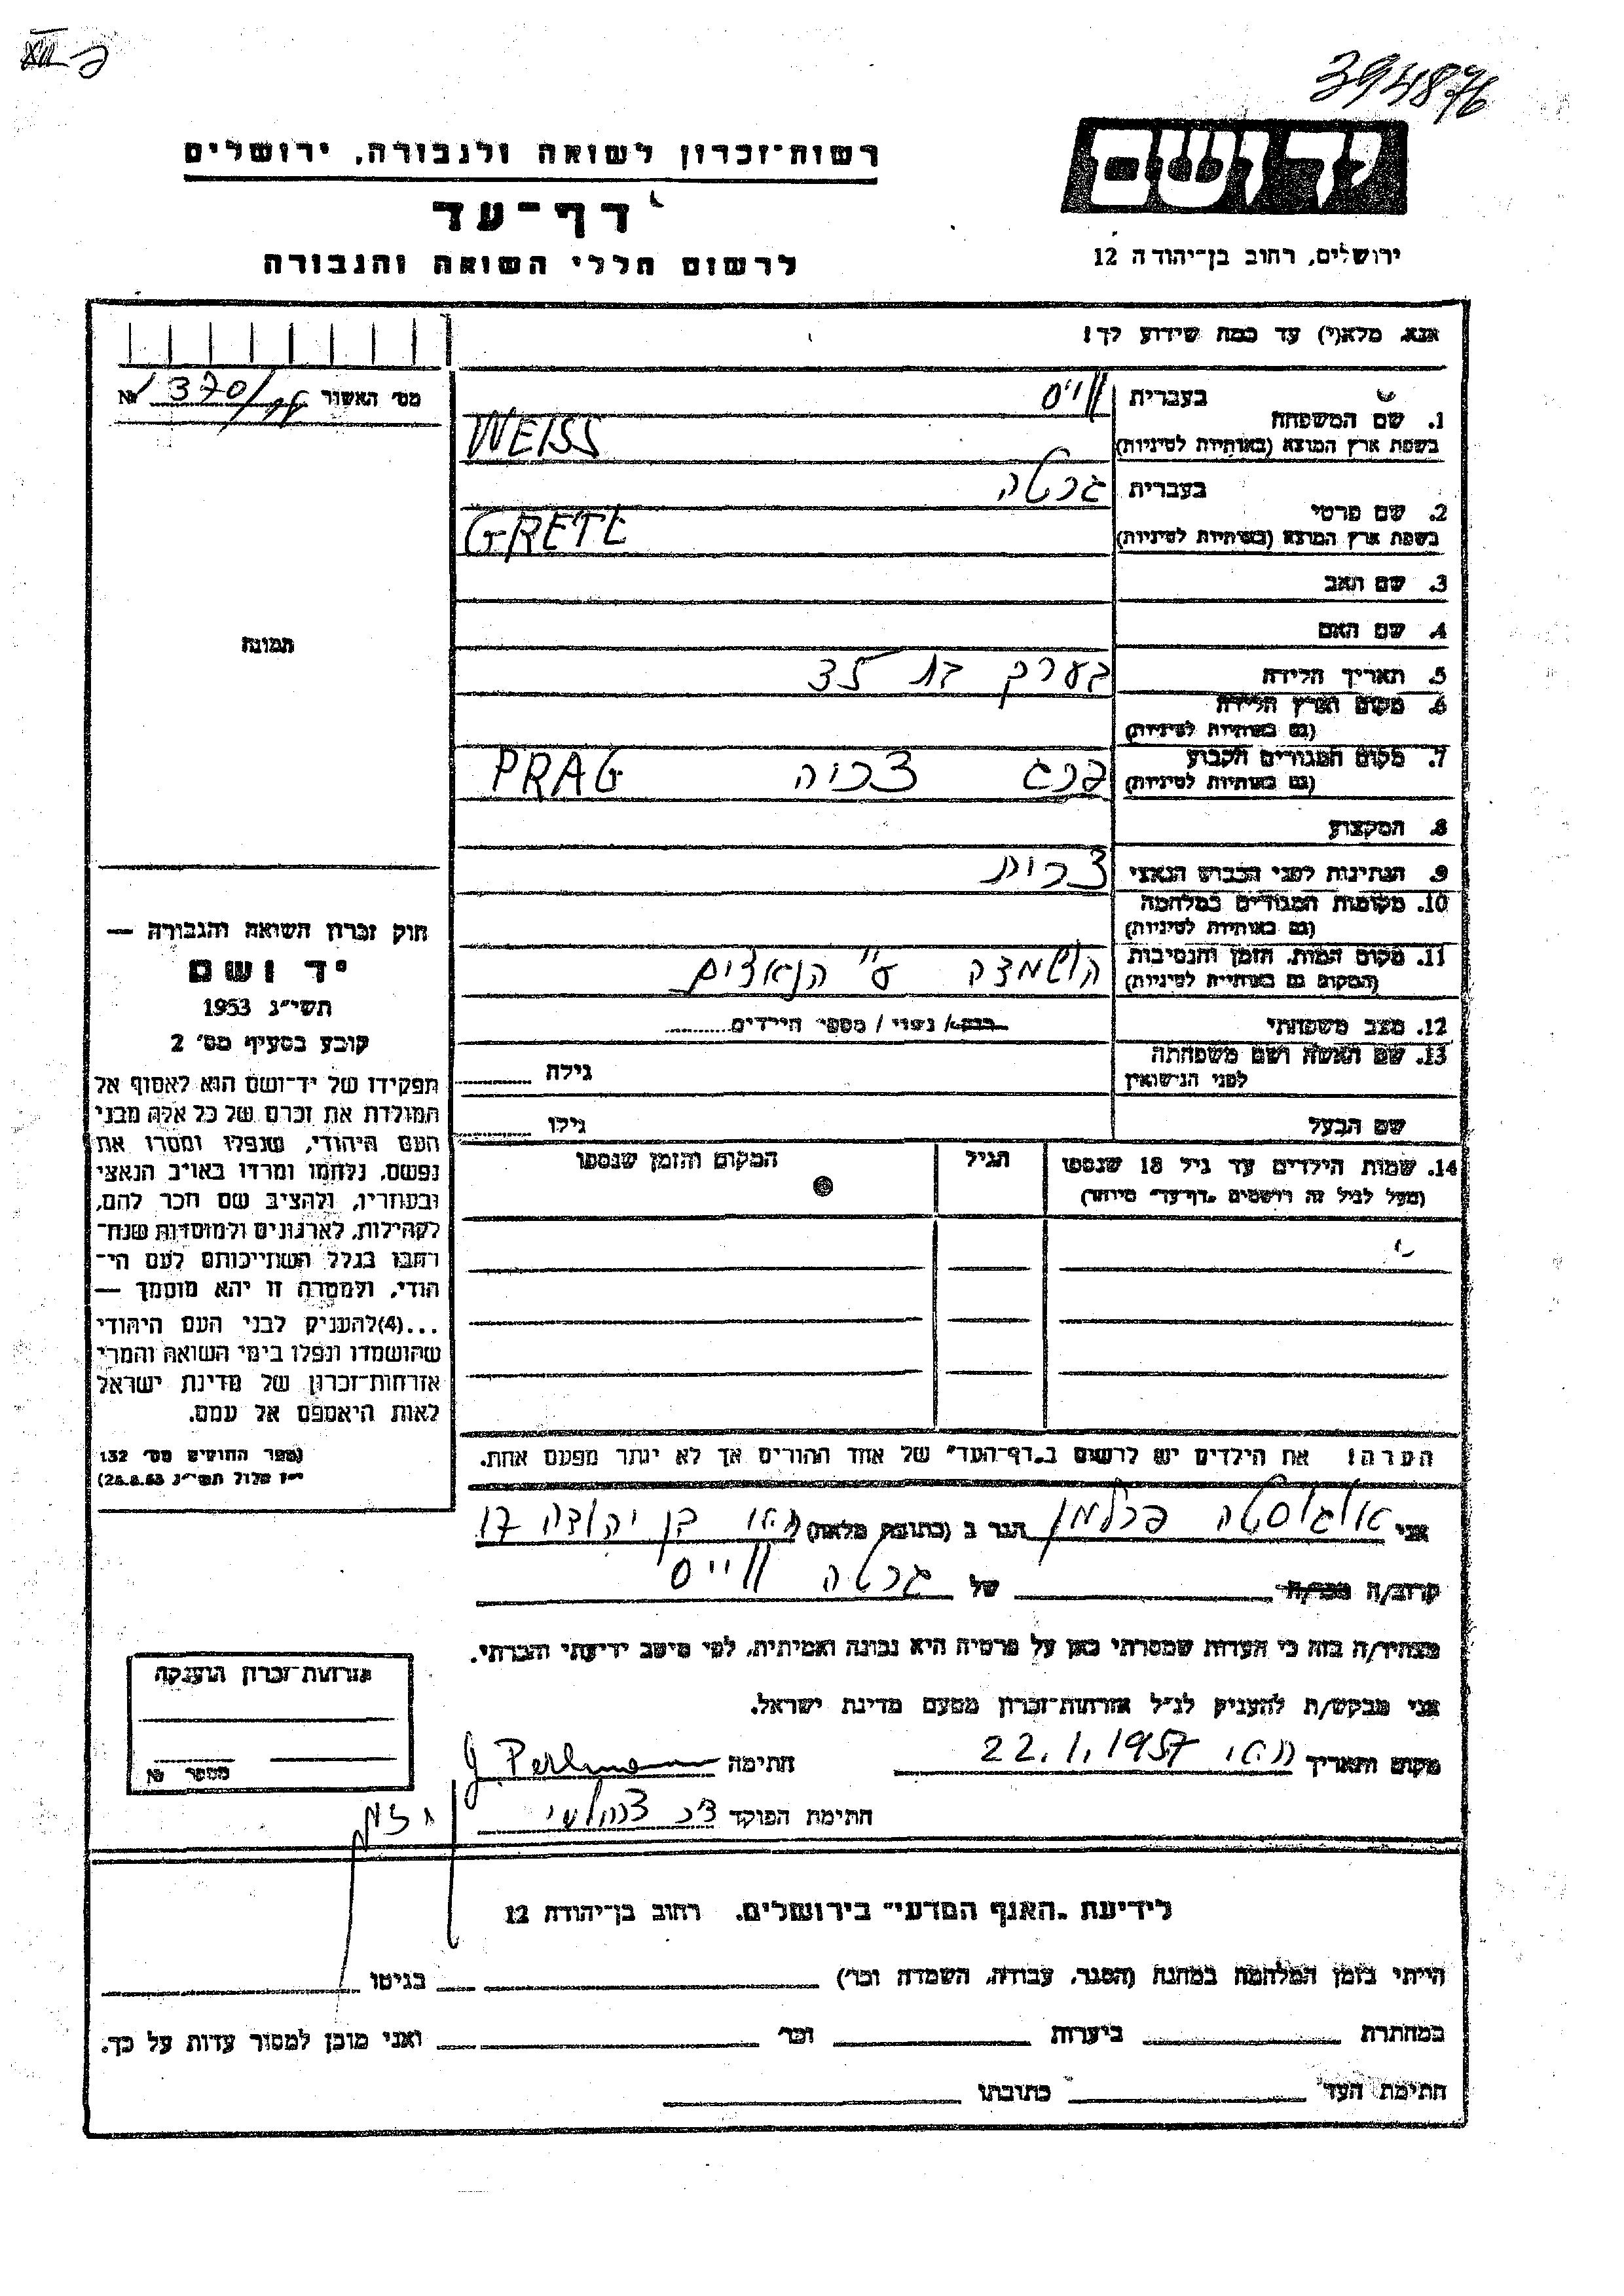 394876
רשות־זכרון לשואה ולגבורה, ירושלים
יד ושם
דף־עד
ירושלים, רחוב בן־יהודה 12
לרשום חללי השואה והגבורה
אנא, מלא(י) עד כמה שידוע לך!
מס׳ האשור № 370/
בעברית
1. שם המשפחה
בשפת ארץ המוצא (באותיות לטיניות)
ווייס
WEISS
בעברית
2. שם פרטי
בשפת ארץ המוצא (באותיות לטיניות)
גרטה
GRETE
3. שם האב
4. שם האם
תמונה
5. תאריך הלידה בערך בת 35
6. מקום וארץ הלידה
(גם באותיות לטיניות)
7. מקום המגורים הקבוע
(גם באותיות לטיניות)
פרג צכיה PRAG
8. המקצוע
9. הנתינות לפני הכבוש הנאצי צכית
10. מקומות המגורים במלחמה
(גם באותיות לטיניות)
11. מקום המות, הזמן והנסיבות
(המקום גם באותיות לטיניות)
הושמדה ע״י הנאצים
12. מצב משפחתי רווק/ נשוי / מספר הילדים
13. שם האשה ושם משפחתה
לפני הנישואין גילה
שם הבעל גילו
14. שמות הילדים עד גיל 18 שנספו
(מעל לגיל זה רושמים „דף־עד״ מיוחד)
הגיל
המקום והזמן שנספו
חוק זכרון השואה והגבורה —
יד ושם
תשי״ג 1953
קובע בסעיף מס׳ 2
תפקידו של יד־ושם הוא לאסוף אל
המולדת את זכרם של כל אלה מבני
העם היהודי, שנפלו ומסרו את
נפשם, נלחמו ומרדו באויב הנאצי
ובעוזריו, ולהציב שם וזכר להם,
לקהילות, לארגונים ולמוסדות שנח־
רבו בגלל השתייכותם לעם הי־
הודי, ולמטרה זו יהא מוסמך —
...(4)להעניק לבני העם היהודי
שהושמדו ונפלו בימי השואה והמרי
אזרחות־זכרון של מדינת ישראל
לאות היאספם אל עמם.
(ספר החוקים מס׳ 132
י״ז אלול תשי״ג 28.8.53)
הערה! את הילדים יש לרשום ב„דף־העד״ של אחד ההורים אך לא יותר מפעם אחת.
אני אוגוסטה פרלמן הגר ב (כתובת מלאה) בן יהודה 17
קרוב/ה מכר/ה של גרטה ווייס
מצהיר/ה בזה כי העדות שמסרתי כאן על פרטיה היא נכונה ואמיתית, לפי מיטב ידיעתי והכרתי.
אני מבקש/ת להעניק לנ״ל אזרחות־זכרון מטעם מדינת ישראל.
מקום ותאריך 22.1.1957 חתימה J. Perlmann
חתימת הפוקד
אזרחות־זכרון הוענקה
מספר №
לידיעת „האגף המדעי״ בירושלים, רחוב בן־יהודה 12
הייתי בזמן המלחמה במחנה (הסגר, עבודה, השמדה וכו׳) בגיטו
במחתרת ביערות וכו׳ ואני מוכן למסור עדות על כך.
חתימת העד כתובתו